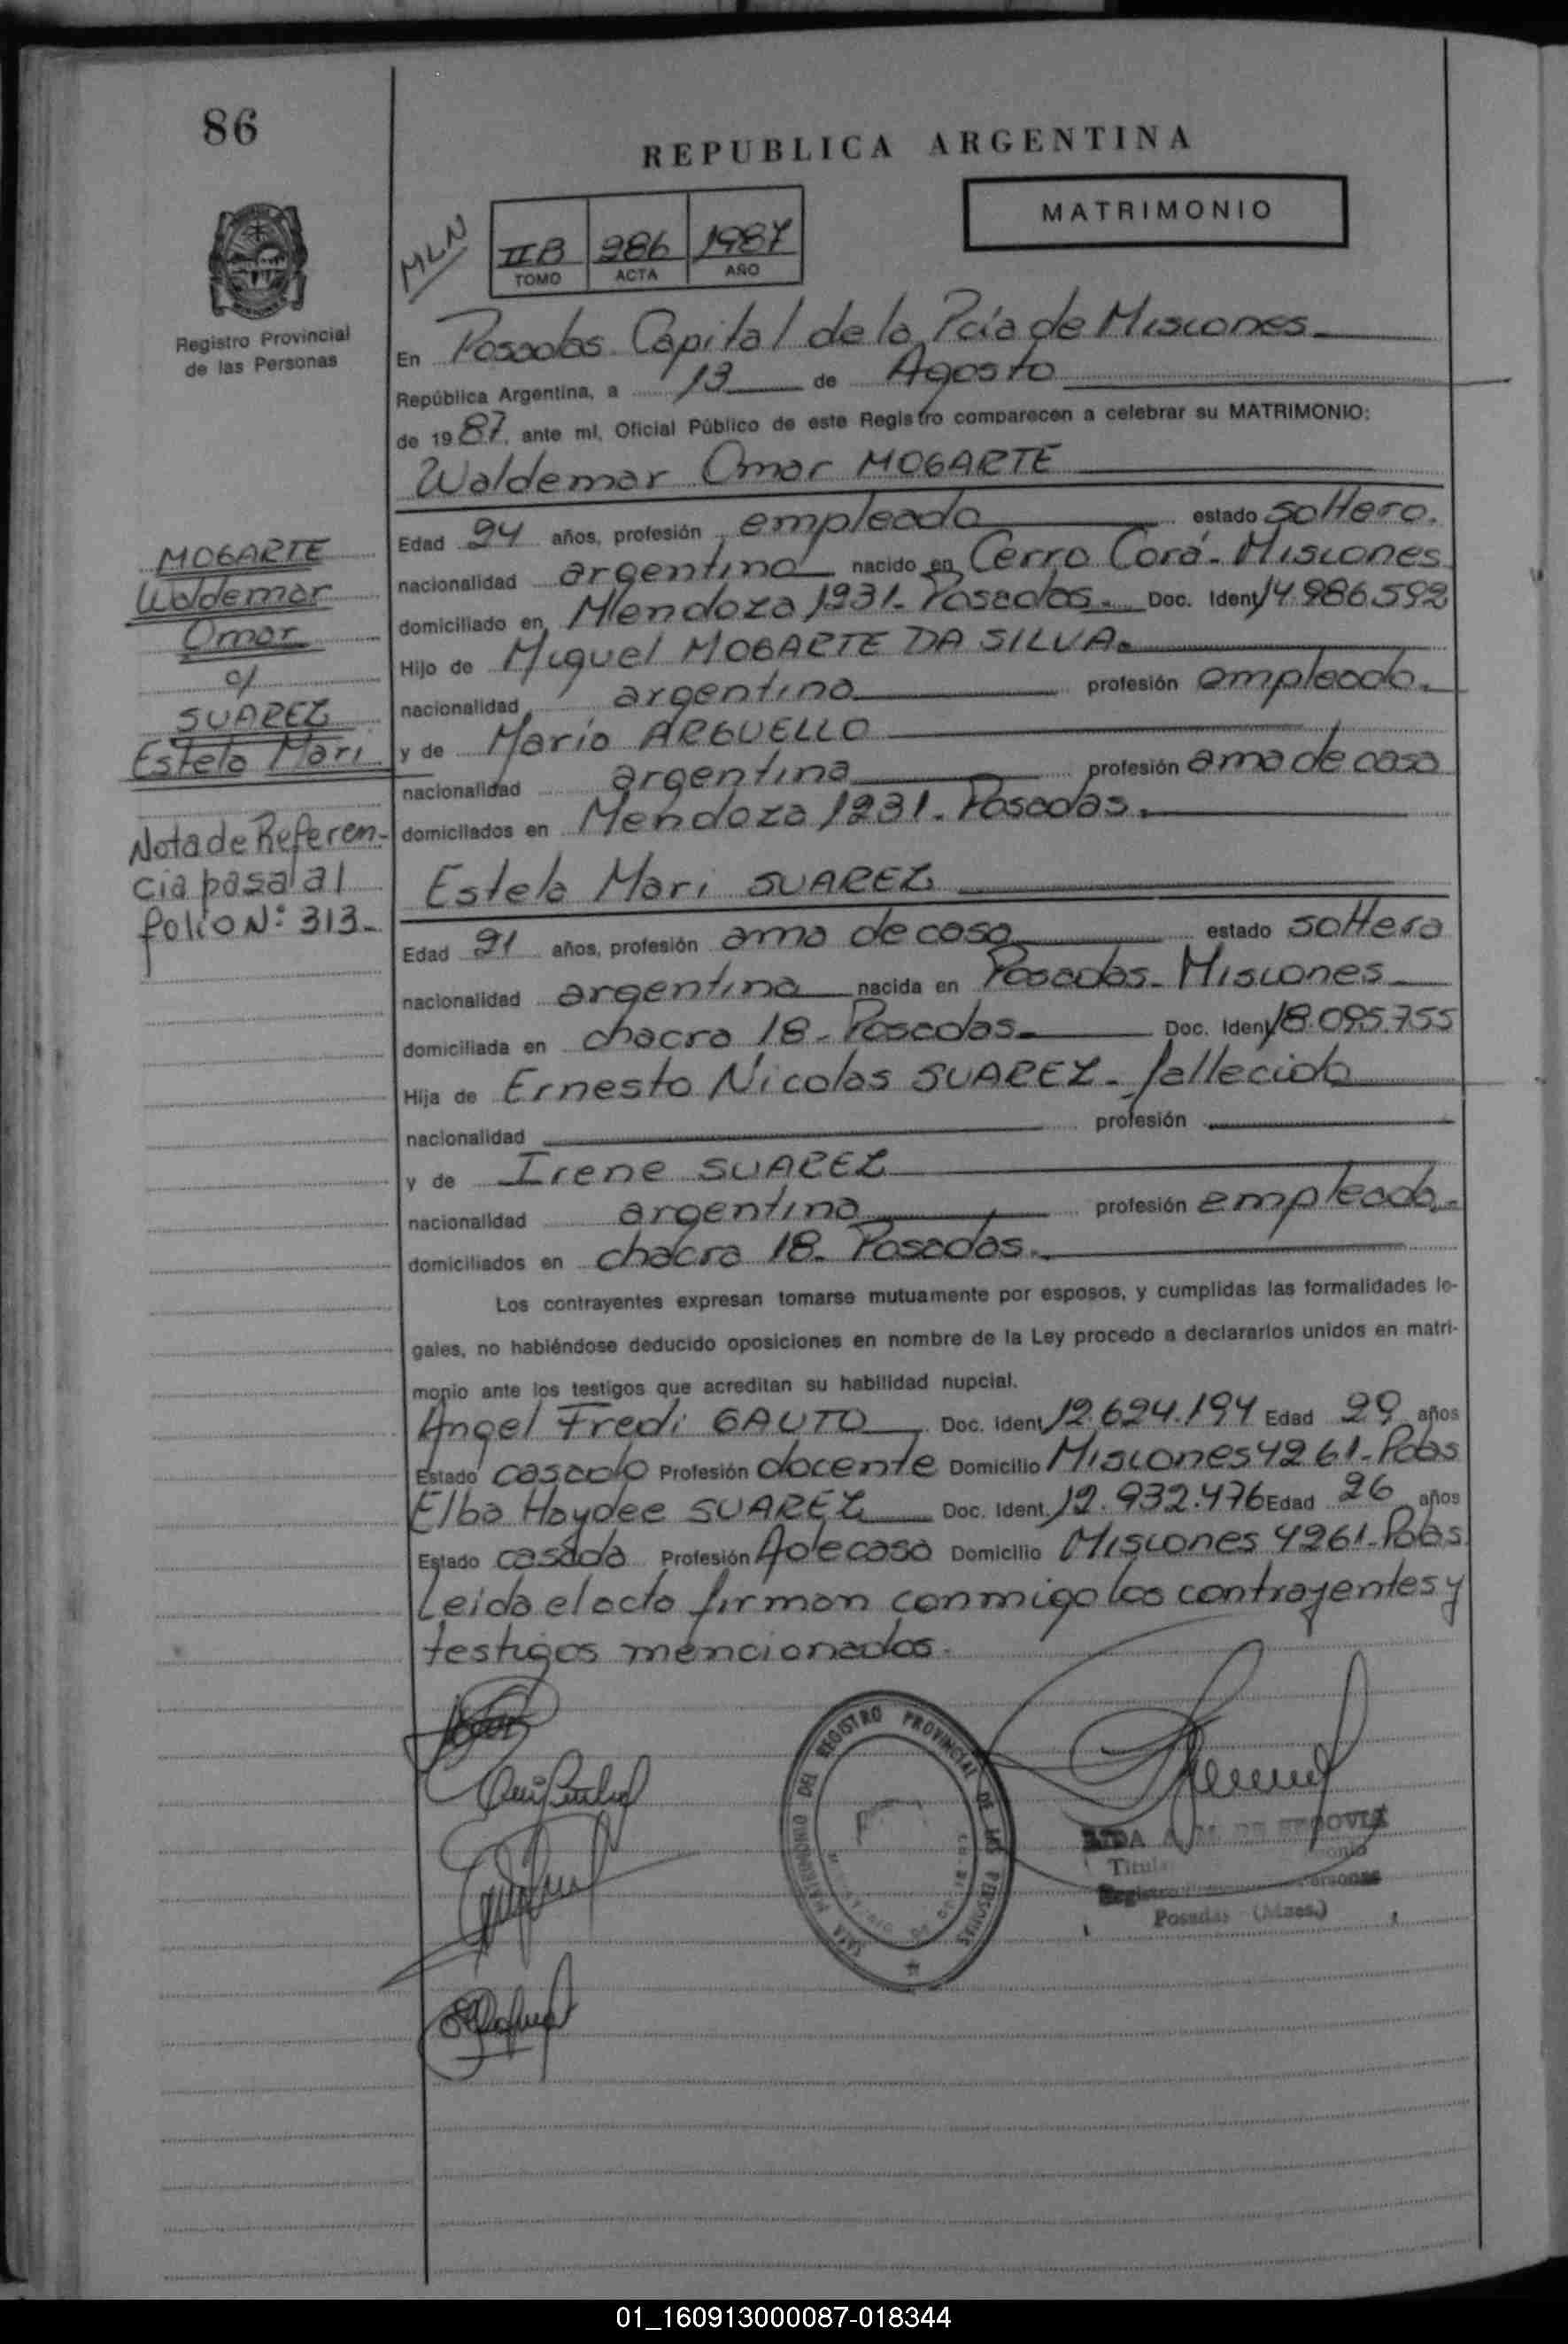 86
REPUBLICA ARGENTINA
MATRIMONIO
MLN
IIB 286 1987
TOMO ACTA AÑO
Registro Provincial
de las Personas
En Posadas Capital de la Pcia de Misiones
República Argentina, a 13 de Agosto
de 1987, ante mi, Oficial Público de este Registro comparecen a celebrar su MATRIMONIO:
Waldemar Omar MOGARTE
Edad 24 años, profesión empleado estado soltero.
nacionalidad argentina nacido en Cerro Corá - Misiones
domiciliado en Mendoza 1231 - Posadas. Doc. Ident 14.286.592
Hijo de Miguel MOGARTE DA SILVA
nacionalidad argentina profesión empleado.
y de Maria ARGUELLO
nacionalidad argentina profesión ama de casa
domiciliados en Mendoza 1231 - Posadas.
Estela Mari SUAREZ
Edad 21 años, profesión ama de casa estado soltera
nacionalidad argentina nacida en Posadas - Misiones
domiciliada en chacra 18 - Posadas Doc. Ident 18.095.755
Hija de Ernesto Nicolas SUAREZ - fallecido
nacionalidad profesión
y de Irene SUAREZ
nacionalidad argentina profesión empleada.
domiciliados en chacra 18 - Posadas.
Los contrayentes expresan tomarse mutuamente por esposos, y cumplidas las formalidades le-
gales, no habiéndose deducido oposiciones en nombre de la Ley procedo a declararlos unidos en matri-
monio ante los testigos que acreditan su habilidad nupcial.
Angel Fredi GAUTO Doc. Ident 12.624.194 Edad 29 años
Estado casado Profesión docente Domicilio Misiones 4261 - Pdas
Elba Haydee SUAREZ Doc. Ident. 12.932.476 Edad 26 años
Estado casada Profesión A de casa Domicilio Misiones 4261 - Pdas
Leida el acta firman conmigo los contrayentes y
testigos mencionados.
MOGARTE
Waldemar
Omar
c/
SUAREZ
Estela Mari
Nota de Referen-
cia pasa al
folio Nº: 313.-
REGISTRO PROVINCIAL DE LAS PERSONAS
DE SEGOVIA
Posadas (Mnes.)
01_160913000087-018344